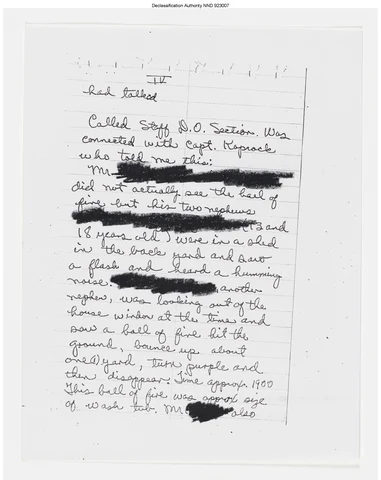 Declassification Authority NND 923007
IV
had talked
Called Staff D.O. Section. Was
connected with Capt. Koprock
who told me this:
Mr.
did not actually see the ball of
fire but his two nephews
(13 and
18 years old) were in a shed
in the back yard and saw
a flash and heard a humming
noise. another
nephew, was looking out of the
house window at the time and
saw a ball of fire hit the
ground, bounce up about
one (1) yard, turn purple and
then disappear. Time approx. 1900
This ball of fire was approx size
of wash tub. Mr. also